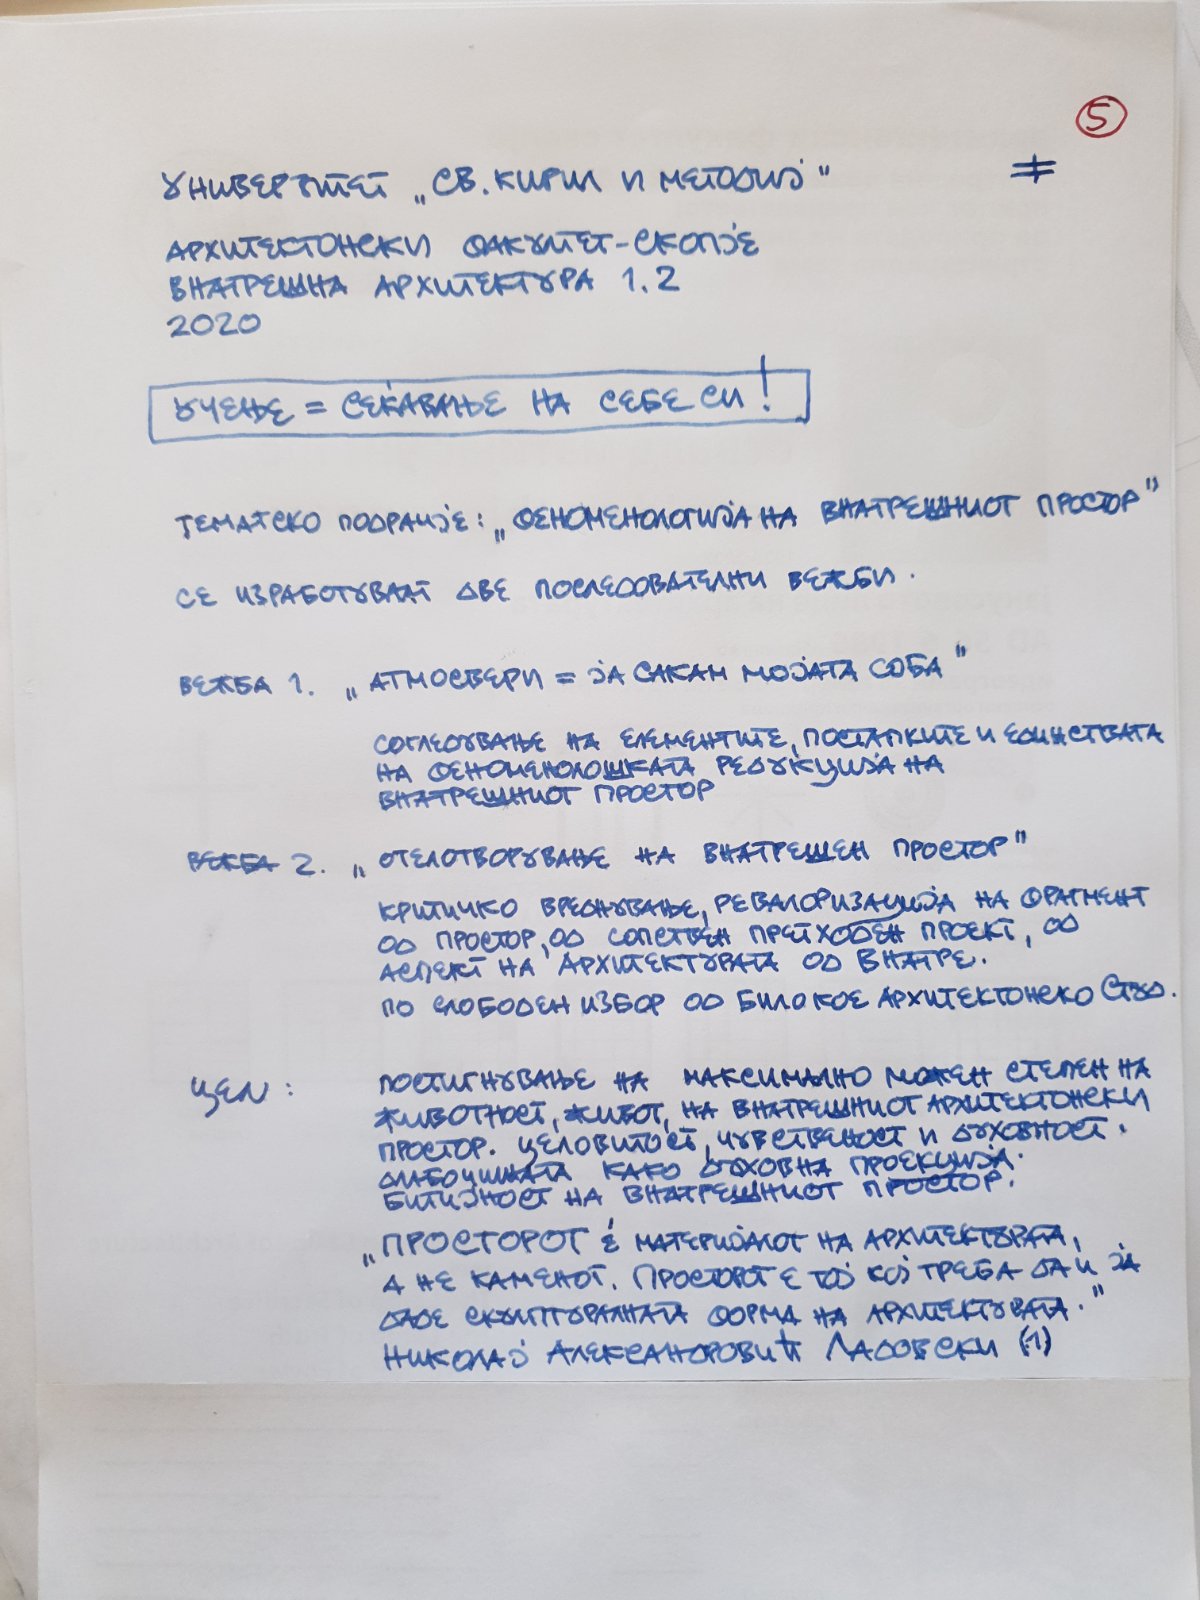 5
УНИВЕРЗИТЕТ „СВ. КИРИЛ И МЕТОДИЈ"
АРХИТЕКТОНСКИ ФАКУЛТЕТ-СКОПЈЕ
ВНАТРЕШНА АРХИТЕКТУРА 1.2
2020
УЧЕЊЕ = СЕЌАВАЊЕ НА СЕБЕ СИ!
ТЕМАТСКО ПОДРАЧЈЕ: „ФЕНОМЕНОЛОГИЈА НА ВНАТРЕШНИОТ ПРОСТОР"
СЕ ИЗРАБОТУВААТ ДВЕ ПОСЛЕДОВАТЕЛНИ ВЕЖБИ.
ВЕЖБА 1. „АТМОСВЕРИ = ЈА САКАМ МОЈАТА СОБА"
СОГЛЕДУВАЊЕ НА ЕЛЕМЕНТИТЕ, ПОСТАПКИТЕ И ЕДИНСТВАТА
НА ФЕНОМЕНОЛОШКАТА РЕДУКЦИЈА НА
ВНАТРЕШНИОТ ПРОСТОР
ВЕЖБА 2. „ОТЕЛОТВОРУВАЊЕ НА ВНАТРЕШЕН ПРОСТОР"
КРИТИЧКО ВРЕДНУВАЊЕ, РЕВАЛОРИЗАЦИЈА НА ФРАГМЕНТ
ОД ПРОСТОР, ОД СОПСТВЕН ПРЕТХОДЕН ПРОЕКТ, ОД
АСПЕКТ НА АРХИТЕКТУРАТА ОД ВНАТРЕ.
ПО СЛОБОДЕН ИЗБОР ОД БИЛО КОЕ АРХИТЕКТОНСКО СТУД.
ЦЕЛ: ПОСТИГНУВАЊЕ НА МАКСИМАЛНО МОЖЕН СТЕПЕН НА
ЖИВОТНОСТ, ЖИВОТ, НА ВНАТРЕШНИОТ АРХИТЕКТОНСКИ
ПРОСТОР. ЦЕЛОВИТОСТ, ЧУВСТВЕНОСТ И ДУХОВНОСТ.
ДЛАБОЧИНАТА КАКО ДУХОВНА ПРОЕКЦИЈА.
БИТИЈНОСТ НА ВНАТРЕШНИОТ ПРОСТОР.
„ПРОСТОРОТ Е МАТЕРИЈАЛОТ НА АРХИТЕКТУРАТА,
А НЕ КАМЕНОТ. ПРОСТОРОТ Е ТОЈ КОЈ ТРЕБА ДА И ЈА
ДАДЕ СКУЛПТУРАЛНАТА ФОРМА НА АРХИТЕКТУВАТА."
НИКОЛАЈ АЛЕКСАНДРОВИЧ ЛАДОВСКИ (1)